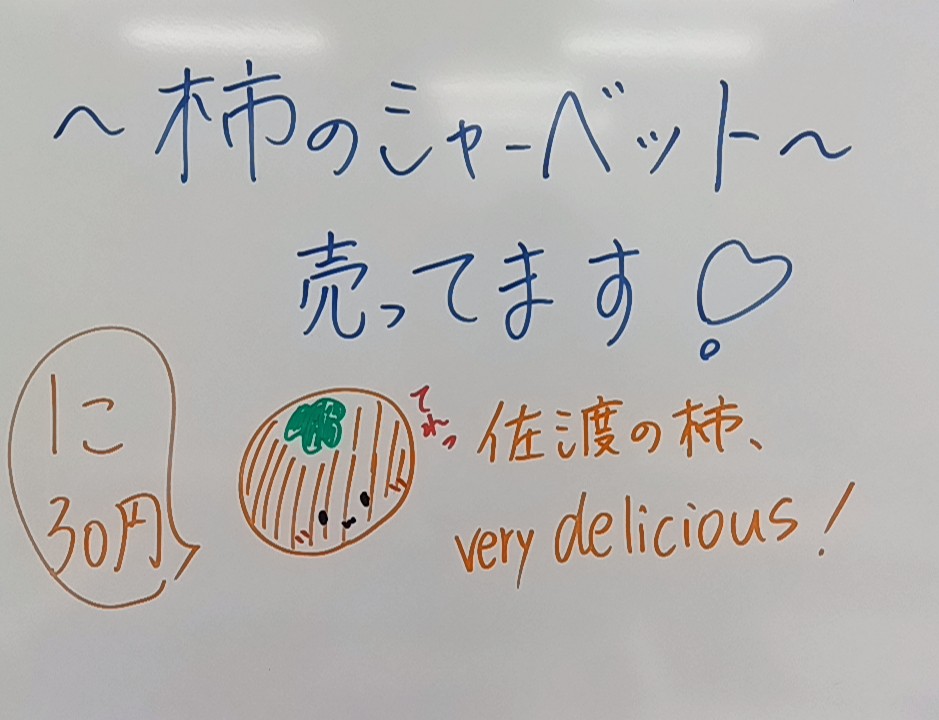 ～柿のシャーベット～
売ってます
1こ
30円
てれっ
佐渡の柿、
very delicious!